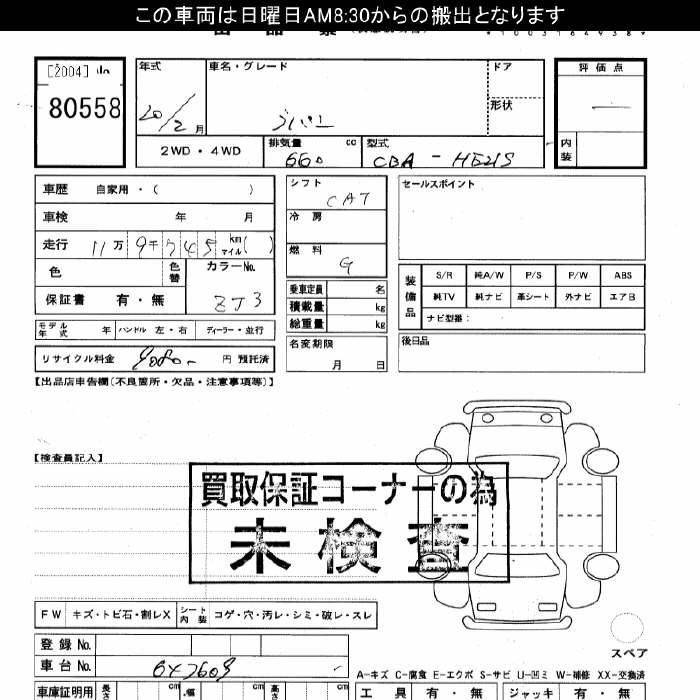 この車両は日曜日AM8:30からの搬出となります
[2004]
80558
年式
20/2月
車名・グレード
ドア
形状
評価点
内装
2WD・4WD
排気量 660 cc
型式 CBA-HE21S
車歴 自家用・( )
車検 年 月
走行 11万9千745 km マイル( )
色
色替
カラーNo.
ZJ3
保証書 有・無
シフト CAT
冷房
燃料 G
乗車定員 名
積載量 kg
総重量 kg
セールスポイント
装備品
S/R 純A/W P/S P/W ABS
純TV 純ナビ 革シート 外ナビ エアB
ナビ型番:
モデル年式 年 ハンドル 左・右 ディーラー・並行
リサイクル料金 円 預託済
名変期限
月 日
後日品
【出品店申告欄(不良箇所・欠品・注意事項等)】
【検査員記入】
買取保証コーナーの為
未検査
FW キズ・トビ石・割レX シート内装 コゲ・穴・汚レ・シミ・破レ・スレ
登録No.
車台No.
スペア
A-キズ C-腐食 E-エクボ S-サビ U-凹ミ W-補修 XX-交換済
車庫証明用 長さ cm 幅 cm 高さ cm
工具 有・無 ジャッキ 有・無